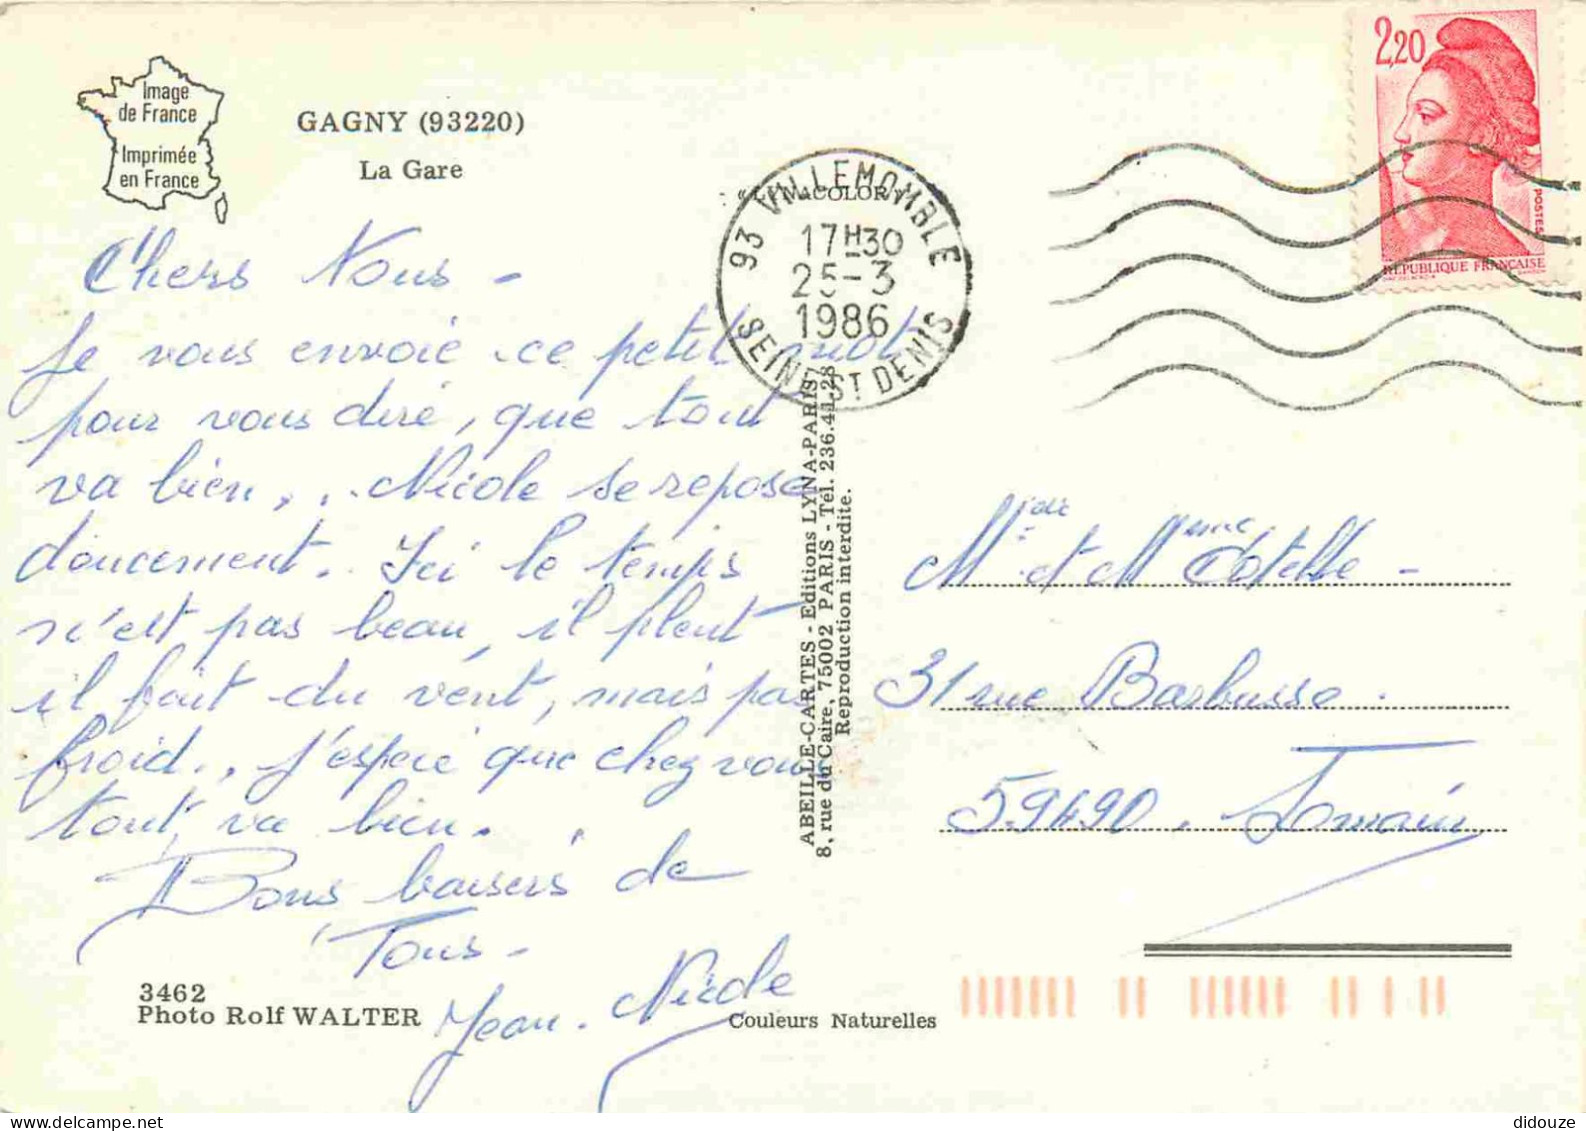 Image
de France
Imprimée
en France
GAGNY (93220)
La Gare
2,20
POSTES
REPUBLIQUE FRANÇAISE
93 VILLEMOMBLE
17H30
25-3
1986
SEINE ST DENIS
Chers Vous -
Je vous envoie ce petit mot
pour vous dire, que tout
va bien, . Nicole se repose
doucement. Ici le temps
n'est pas beau, il pleut
il fait du vent, mais pas
froid., j'espère que chez vous
tout, va bien.
Bons baisers de
Tous -
Jean. Nicole
ABEILLE-CARTES - Editions LYNA-PARIS
8, rue du Caire, 75002 PARIS - Tél. 236.41.28
Reproduction interdite.
et Mme Cotelle -
31 rue Barbusse.
59490. Somain
3462
Photo Rolf WALTER
Couleurs Naturelles
didouze